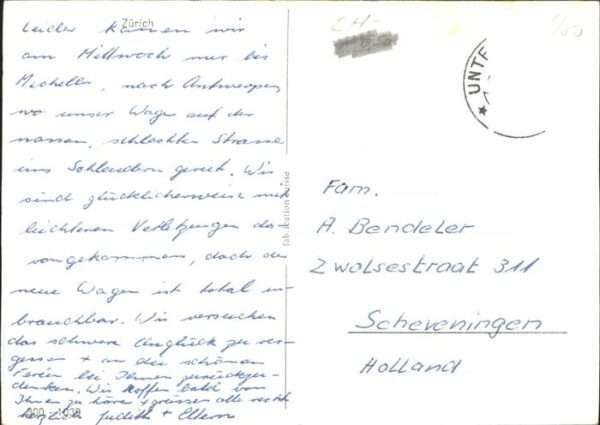 Zürich
Leider kamen wir
am Mittwoch nur bis
Mechelen, nach Antwerpen,
wo unser Wagen auf der
nassen, schlechten Strasse
ins Schleudern geriet. Wir
sind glücklicherweise mit
leichteren Verletzungen da-
vongekommen, doch der
neue Wagen ist total un-
brauchbar. Wir versuchen
das schwere Unglück zu ver-
gessen + an die schönen
Ferien bei Ihnen zurückzu-
denken. Wir hoffen bald von
Ihnen zu hören + grüssen alle recht
herzlich Judith + Eltern
fabrikation suisse
CH-
* UNTE
Fam.
A. Bendeler
Zwolsestraat 311
Scheveningen
Holland